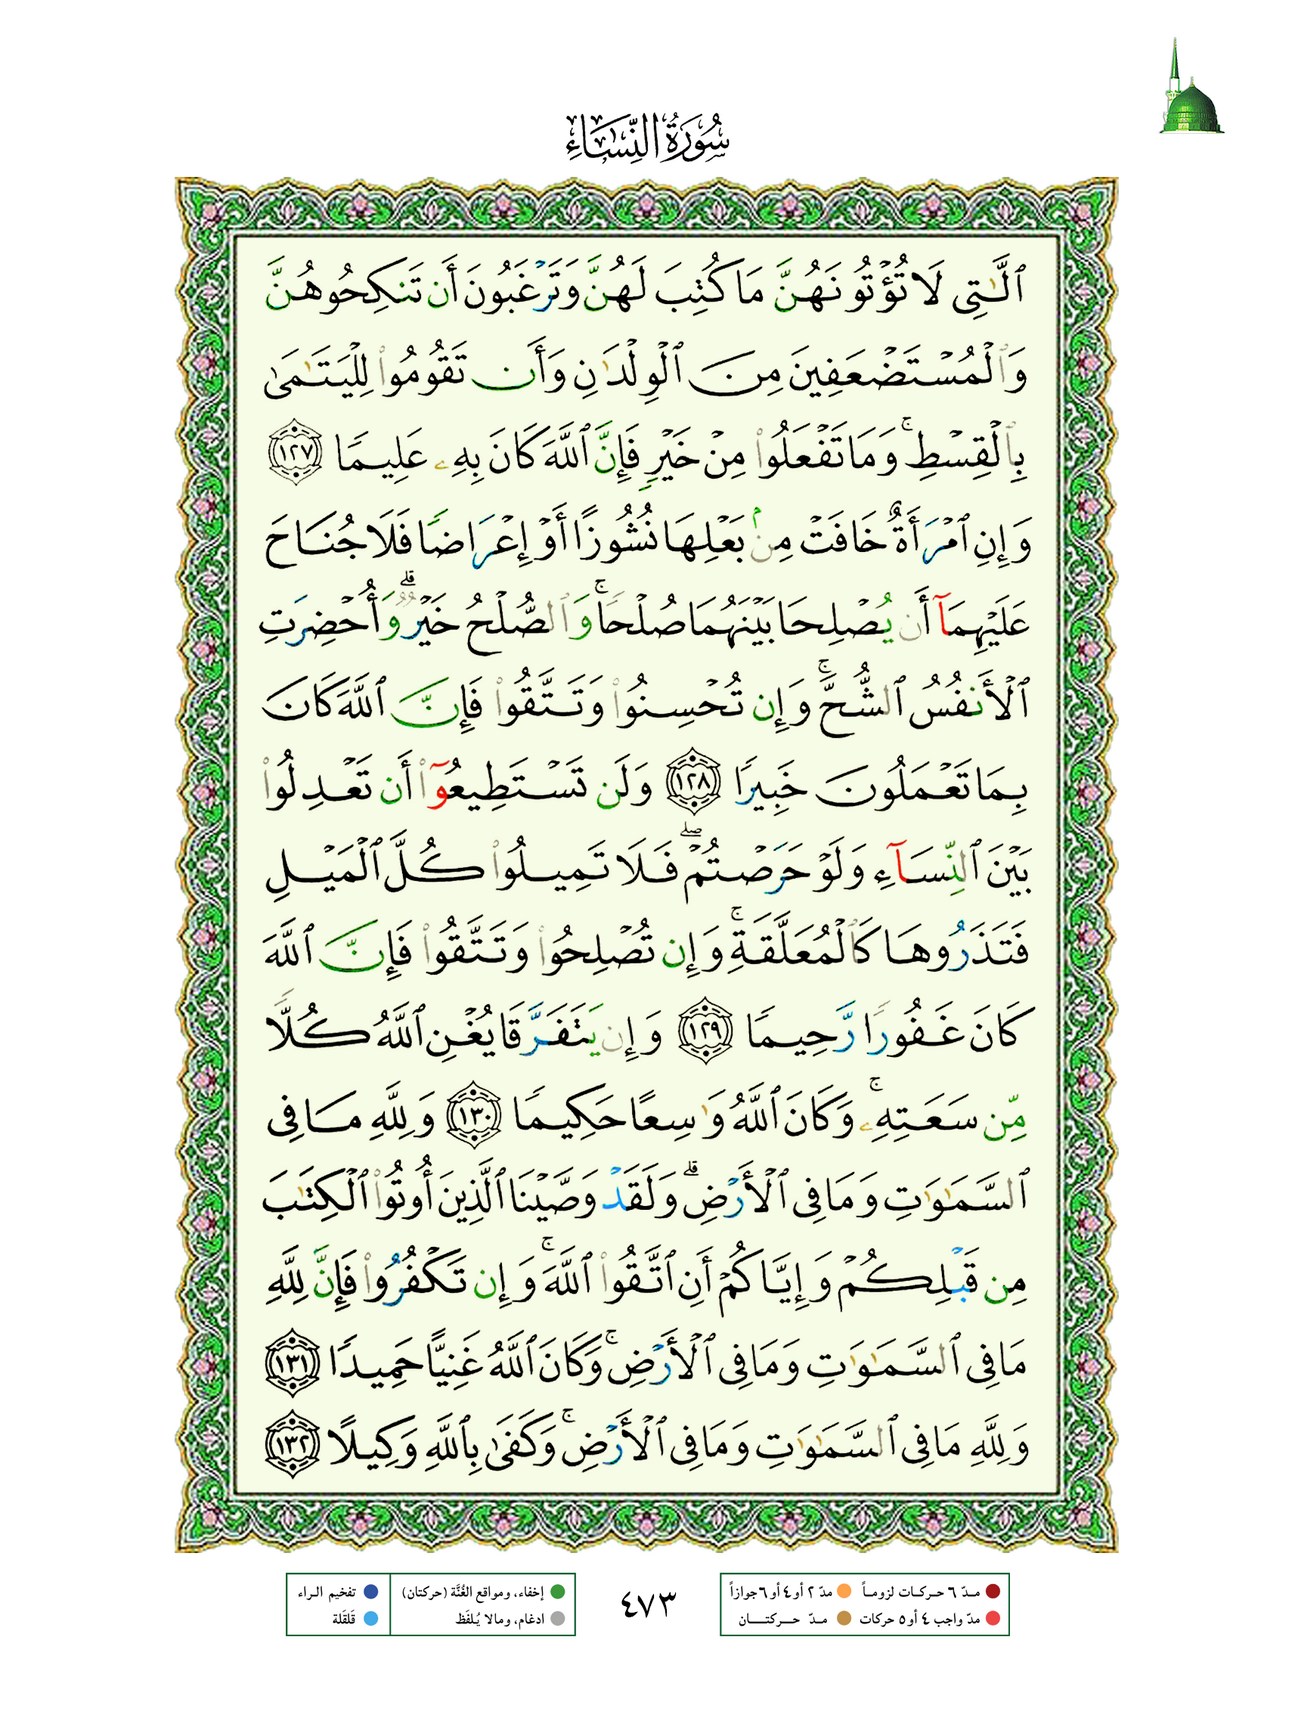 سُورَةُ النِّسَاءِ
ٱلَّـٰتِى لَا تُؤْتُونَهُنَّ مَا كُتِبَ لَهُنَّ وَتَرْغَبُونَ أَن تَنكِحُوهُنَّ
وَٱلْمُسْتَضْعَفِينَ مِنَ ٱلْوِلْدَٰنِ وَأَن تَقُومُوا۟ لِلْيَتَـٰمَىٰ
بِٱلْقِسْطِ ۚ وَمَا تَفْعَلُوا۟ مِنْ خَيْرٍ فَإِنَّ ٱللَّهَ كَانَ بِهِۦ عَلِيمًا ١٢٧
وَإِنِ ٱمْرَأَةٌ خَافَتْ مِنۢ بَعْلِهَا نُشُوزًا أَوْ إِعْرَاضًا فَلَا جُنَاحَ
عَلَيْهِمَآ أَن يُصْلِحَا بَيْنَهُمَا صُلْحًا ۚ وَٱلصُّلْحُ خَيْرٌ ۗ وَأُحْضِرَتِ
ٱلْأَنفُسُ ٱلشُّحَّ ۚ وَإِن تُحْسِنُوا۟ وَتَتَّقُوا۟ فَإِنَّ ٱللَّهَ كَانَ
بِمَا تَعْمَلُونَ خَبِيرًا ١٢٨ وَلَن تَسْتَطِيعُوٓا۟ أَن تَعْدِلُوا۟
بَيْنَ ٱلنِّسَآءِ وَلَوْ حَرَصْتُمْ ۖ فَلَا تَمِيلُوا۟ كُلَّ ٱلْمَيْلِ
فَتَذَرُوهَا كَٱلْمُعَلَّقَةِ ۚ وَإِن تُصْلِحُوا۟ وَتَتَّقُوا۟ فَإِنَّ ٱللَّهَ
كَانَ غَفُورًا رَّحِيمًا ١٢٩ وَإِن يَتَفَرَّقَا يُغْنِ ٱللَّهُ كُلًّا
مِّن سَعَتِهِۦ ۚ وَكَانَ ٱللَّهُ وَٰسِعًا حَكِيمًا ١٣٠ وَلِلَّهِ مَا فِى
ٱلسَّمَـٰوَٰتِ وَمَا فِى ٱلْأَرْضِ ۗ وَلَقَدْ وَصَّيْنَا ٱلَّذِينَ أُوتُوا۟ ٱلْكِتَـٰبَ
مِن قَبْلِكُمْ وَإِيَّاكُمْ أَنِ ٱتَّقُوا۟ ٱللَّهَ ۚ وَإِن تَكْفُرُوا۟ فَإِنَّ لِلَّهِ
مَا فِى ٱلسَّمَـٰوَٰتِ وَمَا فِى ٱلْأَرْضِ ۚ وَكَانَ ٱللَّهُ غَنِيًّا حَمِيدًا ١٣١
وَلِلَّهِ مَا فِى ٱلسَّمَـٰوَٰتِ وَمَا فِى ٱلْأَرْضِ ۚ وَكَفَىٰ بِٱللَّهِ وَكِيلًا ١٣٢
مدّ ٦ حركات لزوماً مدّ ٢ أو ٤ أو ٦ جوازاً
مدّ واجب ٤ أو ٥ حركات مدّ حركتان
٤٧٣
إخفاء، ومواقع الغُنَّة (حركتان) تفخيم الراء
ادغام، ومالا يُلفَظ قلقلة